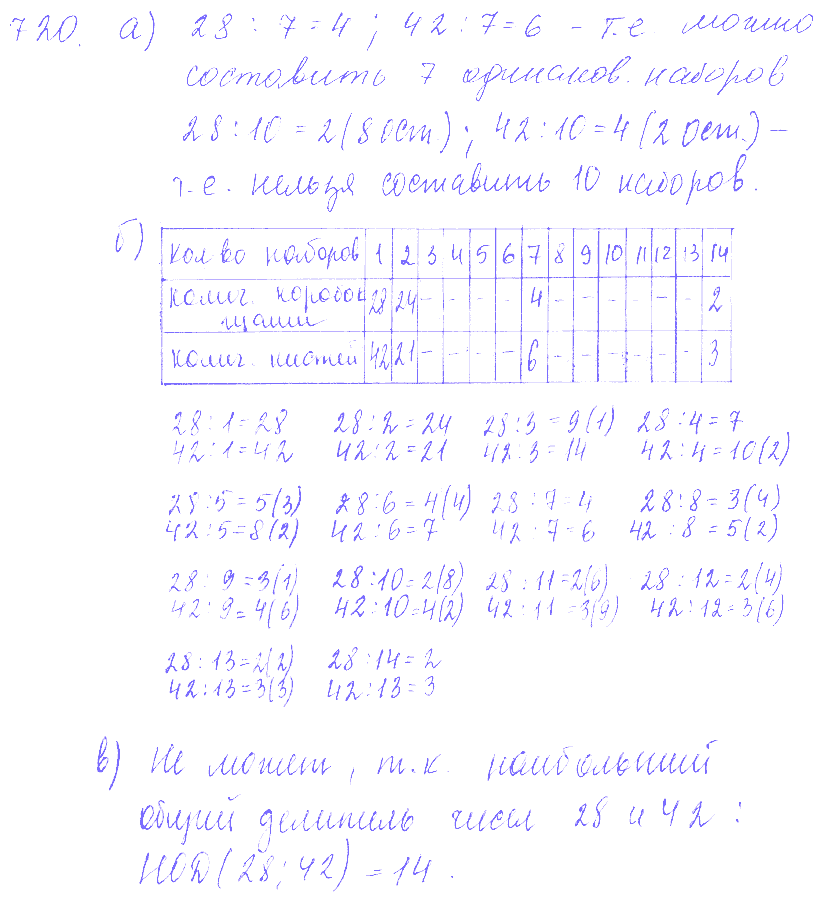 720. а) 28 : 7 = 4 ; 42 : 7 = 6 - т.е. можно
составить 7 одинаков. наборов
28 : 10 = 2 (8 ост.) ; 42 : 10 = 4 (2 ост.) -
т.е. нельзя составить 10 наборов.
б)
Кол во наборов 1 2 3 4 5 6 7 8 9 10 11 12 13 14
колич. коробок 28 24 - - - - 4 - - - - - - 2
колич. кистей 42 21 - - - - 6 - - - - - - 3
28 : 1 = 28 28 : 2 = 24 28 : 3 = 9 (1) 28 : 4 = 7
42 : 1 = 42 42 : 2 = 21 42 : 3 = 14 42 : 4 = 10 (2)
28 : 5 = 5 (3) 28 : 6 = 4 (4) 28 : 7 = 4 28 : 8 = 3 (4)
42 : 5 = 8 (2) 42 : 6 = 7 42 : 7 = 6 42 : 8 = 5 (2)
28 : 9 = 3 (1) 28 : 10 = 2 (8) 28 : 11 = 2 (6) 28 : 12 = 2 (4)
42 : 9 = 4 (6) 42 : 10 = 4 (2) 42 : 11 = 3 (9) 42 : 12 = 3 (6)
28 : 13 = 2 (2) 28 : 14 = 2
42 : 13 = 3 (3) 42 : 13 = 3
в) Не может, т.к. наибольший
общий делитель чисел 28 и 42 :
НОД (28 ; 42) = 14 .